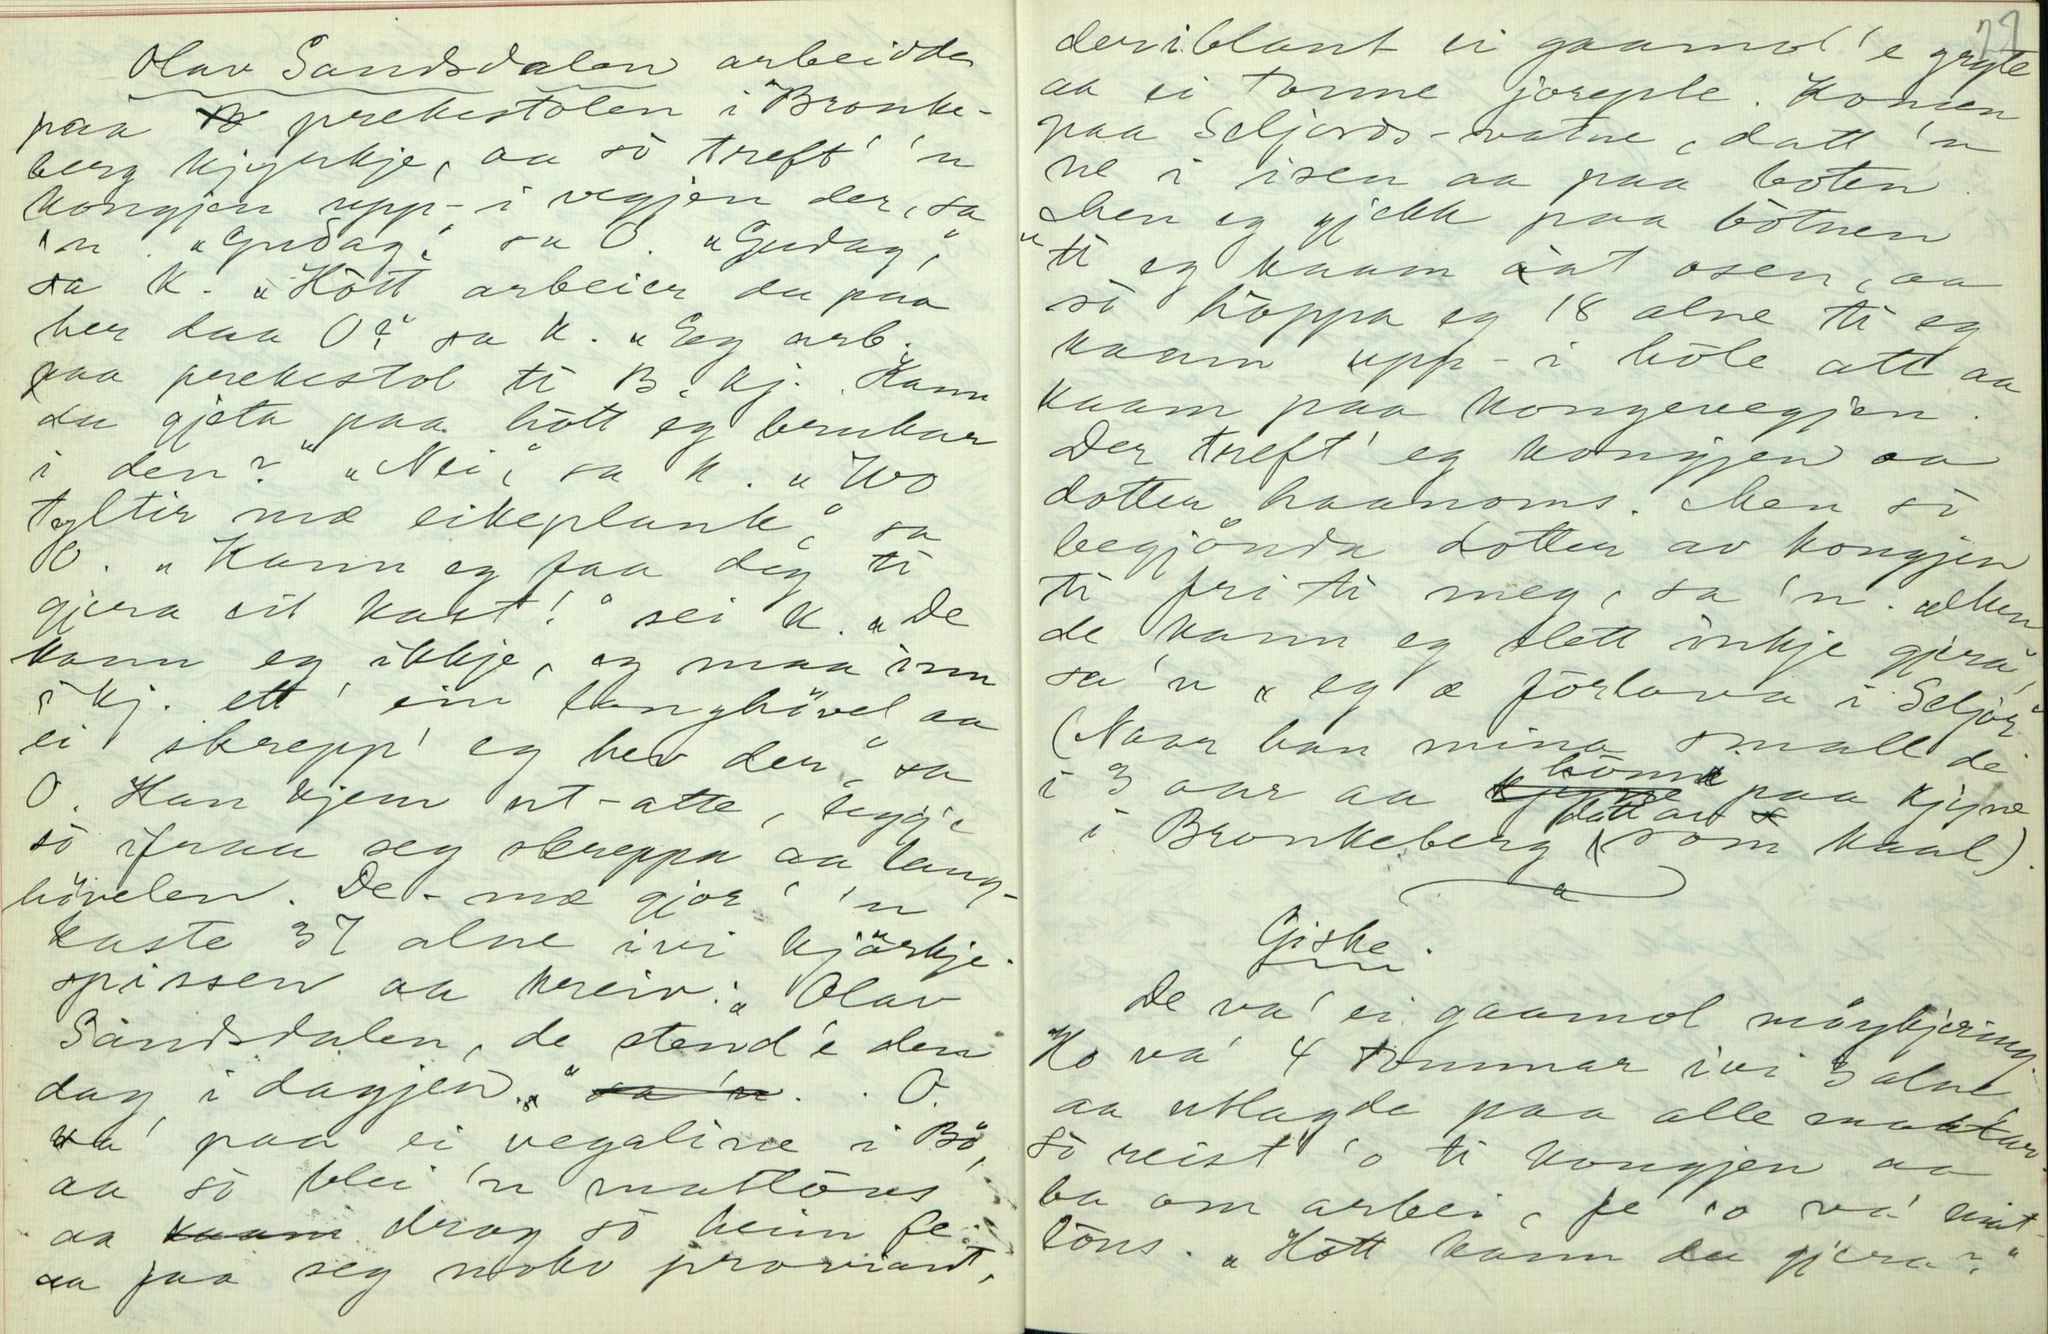 Olav Sandsdalen arbeidde
paa prekestolen i Bronke-
berg kjyrkje, aa så treft' 'n
kongjen upp-i vegjen der, sa
'n. "Gudag," sa O. "Gudag,"
sa K. "Hått arbeier du paa
her daa O?" sa K. "Eg arb.
paa prekestol ti B. kj. Kann
du gjeta paa hått eg brukar
i den?" "Nei," sa K. "Two
tyltir mæ eikeplank," sa
O. "Kann eg faa deg ti
gjera eit kast!" sei K. "De
kann eg ikkje, eg maa inn
i kj. ett' ein langhövel aa
ei skrepp' eg hev der," sa
O. Han kjem ut-atte, leggje
så ifraa seg skreppa aa lang-
hövelen. De-mæ gjor' 'n
kaste 37 alne ivi kjörkje-
spissen aa skreiv: "Olav
Sandsdalen, de stend 'e den
dag i dagjen." sa 'n. O.
va' paa ei vegaline i Bö,
aa så blei 'n matlöns
aa kaam drog så heim fe
aa faa seg noko proviant,
29
deriblant ei gaamol 'e gryte
aa ei tonne joreple. Komen
paa Seljords-vatne, datt 'n
ne i isen aa paa boten.
Men eg gjekk paa botnen
"ti eg kaam aat osen, aa
så höppa eg 18 alne ti eg
kaam upp-i håle att aa
kaam paa kongevegjen.
Der treft' eg kongjen aa
dotter haanoms. Men så
begjönda dotter av kongjen
ti fri ti meg, sa 'n. "Men
de kann eg slett inkje gjera,"
sa 'n "eg æ forlova i Seljor"
(Naar han mina small de
i 3 aar aa böm paa kjyne
i Bronkeberg datt av som kaal).
Giske.
De va' ei gaamol möykjering.
Ho va' 4 tommar ivi 3 alne
aa utlagde paa alle maatar.
Så reist 'o ti kongjen aa
ba om arbei, fe 'o va' mat-
löns. "Hått kann du gjera?"